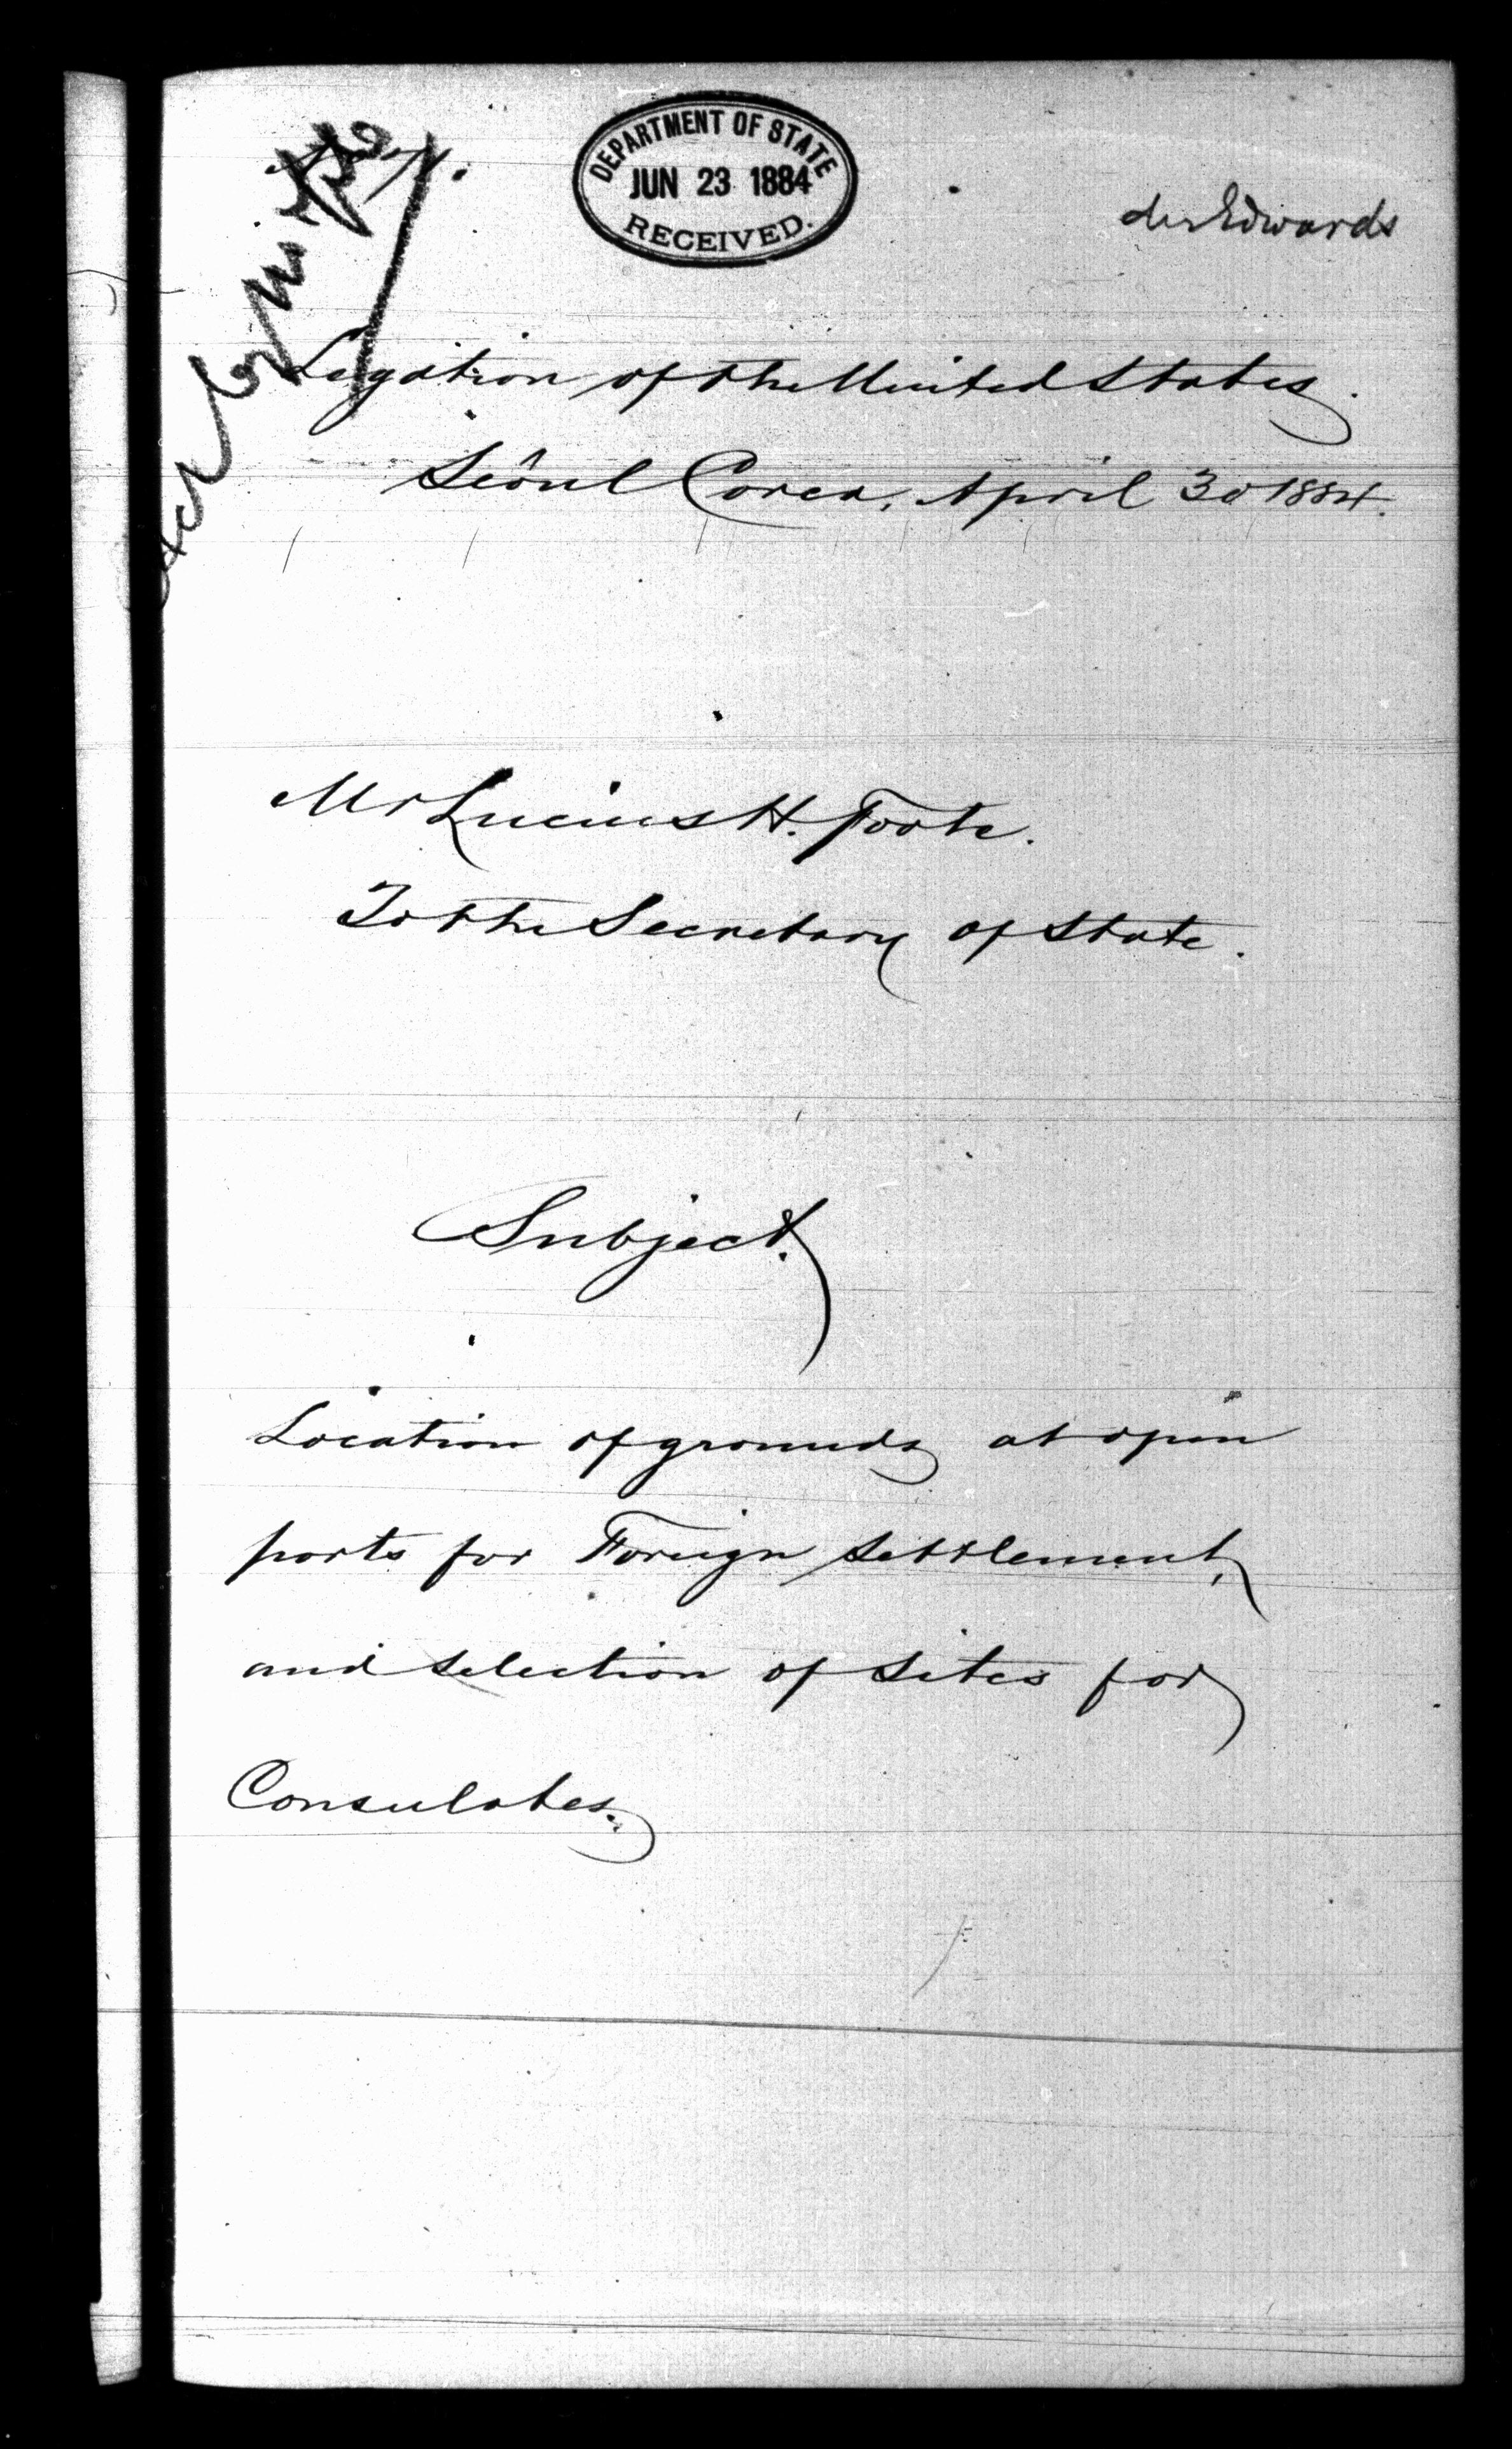 DEPARTMENT OF STATE
JUN 23 1884
RECEIVED.
Edwards
Legation of the United States.
Seôul Corea, April 30 1884.
Mr Lucius H. Foote.
To the Secretary of State.
Subject.
Location of grounds at open
ports for Foreign Settlement,
and selection of sites for
Consulates.